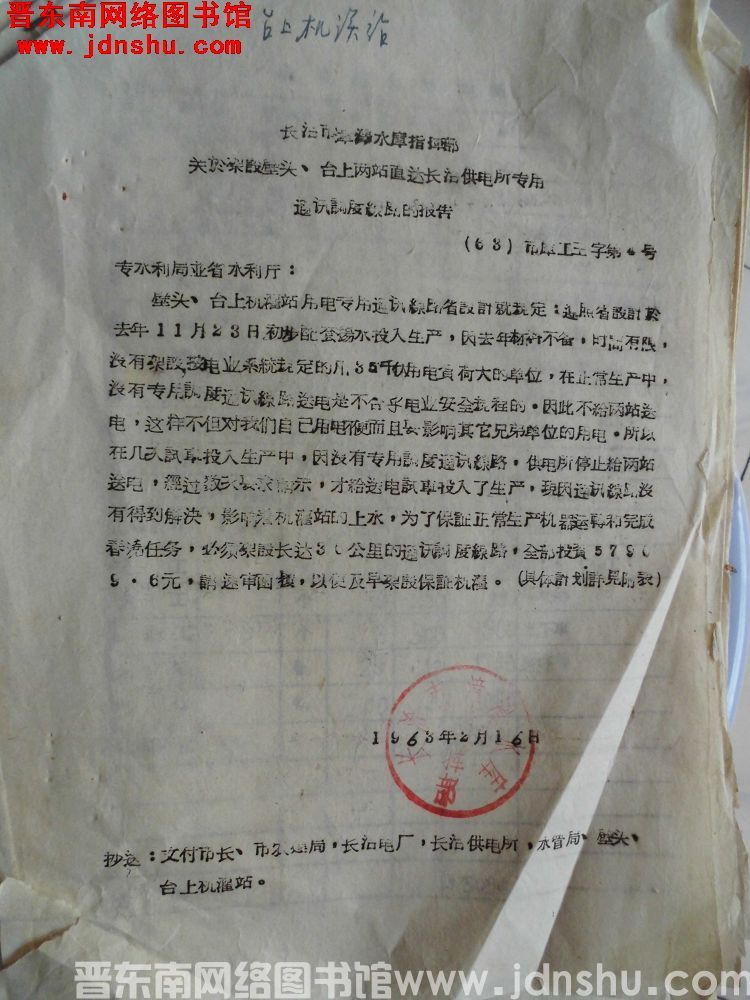 晋东南网络图书馆
www.jdnshu.com
台上机灌站
长治市漳泽水库指挥部
关於架設壁头、台上两站直达长治供电所专用
通訊調度線路的报告
(63)市庫工王字第4号
专水利局並省水利厅:
壁头、台上机灌站用电专用通訊線路省設計就規定:遵照省設計於
去年11月23日初步配套揚水投入生产,因去年材料不备,时间有限,
沒有架設。按电业系統規定的凡35千伏用电負荷大的单位,在正常生产中,
沒有专用調度通訊線路送电是不合乎电业安全規程的。因此不給两站送
电,这样不但对我們自己用电不便而且要影响其它兄弟单位的用电。所以
在几次試車投入生产中,因沒有专用調度通訊線路,供电所停止給两站
送电,經过数次要求請示,才給送电試車投入了生产,現因通訊線路沒
有得到解決,影响着机灌站的上水,为了保証正常生产机器运轉和完成
春澆任务,必須架設长达30公里的通訊調度線路,全部投資5790
9.6元,請速审函复,以便及早架設保証机灌。(具体計划詳見附表)
1963年2月16日
抄送:文付市长、市农建局,长治电厂,长治供电所,水管局、壁头、
台上机灌站。
晋东南网络图书馆www.jdnshu.com